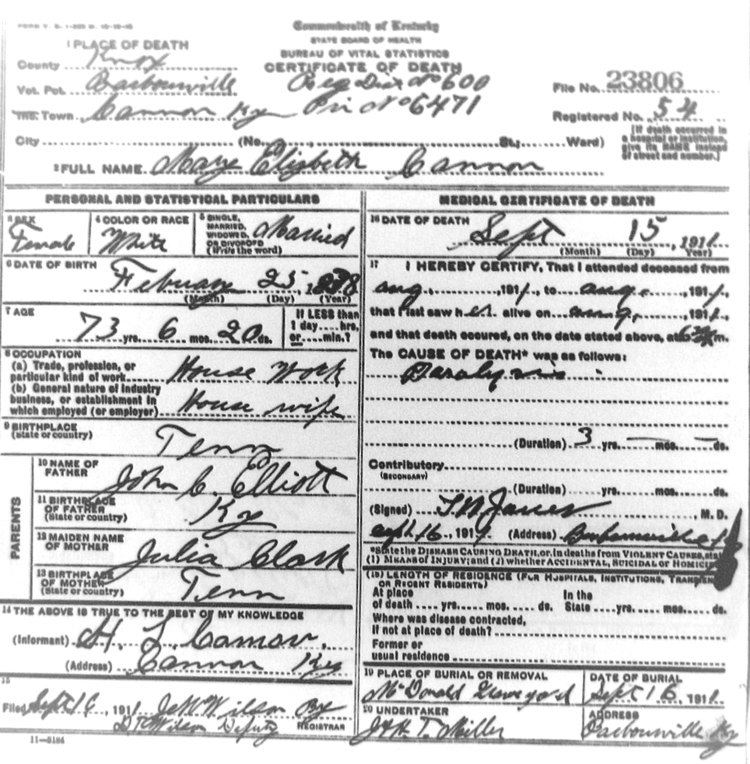 Commonwealth of Kentucky
STATE BOARD OF HEALTH
BUREAU OF VITAL STATISTICS
CERTIFICATE OF DEATH
1 PLACE OF DEATH
County Knox
Vot. Pct. Barbourville Reg Dist No 600 File No. 23806
Inc. Town Cannon Ky Pri No 6471 Registered No. 54
City (No. St.; Ward) (If death occurred in a hospital or institution, give its NAME instead of street and number.)
2 FULL NAME Marye Elizbeth Cannon
PERSONAL AND STATISTICAL PARTICULARS
3 SEX Female
4 COLOR OR RACE White
5 SINGLE, MARRIED, WIDOWED, OR DIVORCED (Write the word) Married
6 DATE OF BIRTH February 25, 1838
(Month) (Day) (Year)
7 AGE 73 yrs. 6 mos. 20 ds.
If LESS than 1 day hrs. or min.?
8 OCCUPATION
(a) Trade, profession, or particular kind of work House Work
(b) General nature of industry business, or establishment in which employed (or employer) House wife
9 BIRTHPLACE (State or country) Tenn
PARENTS
10 NAME OF FATHER John C Elliott
11 BIRTHPLACE OF FATHER (State or country) Ky
12 MAIDEN NAME OF MOTHER Julia Clark
13 BIRTHPLACE OF MOTHER (State or country) Tenn
14 THE ABOVE IS TRUE TO THE BEST OF MY KNOWLEDGE
(Informant) H. L Cannon
(Address) Cannon Ky
15
Filed Sept 16, 1911 Wilson
Wilson Deputy REGISTRAR
11-5184
MEDICAL CERTIFICATE OF DEATH
16 DATE OF DEATH Sept 15, 1911
(Month) (Day) (Year)
17 I HEREBY CERTIFY, That I attended deceased from
Aug, 1911, to Aug, 1911,
that I last saw her alive on Aug, 1911,
and that death occured, on the date stated above, at m.
The CAUSE OF DEATH* was as follows:
Paralysis
(Duration) 3 yrs. mos. ds.
Contributory
(SECONDARY)
(Duration) yrs. mos. ds.
(Signed) M.D.
Sept 16, 1911 (Address) Barbourville
*State the DISEASE CAUSING DEATH, or, in deaths from VIOLENT CAUSES, state
(1) MEANS OF INJURY; and (2) whether ACCIDENTAL, SUICIDAL or HOMICIDAL
(18) LENGTH OF RESIDENCE (FOR HOSPITALS, INSTITUTIONS, TRANSIENTS OR RECENT RESIDENTS)
At place of death yrs. mos. ds. In the State yrs. mos. ds.
Where was disease contracted, if not at place of death?
Former or usual residence
19 PLACE OF BURIAL OR REMOVAL McDonald Graveyard
DATE OF BURIAL Sept 16, 1911
20 UNDERTAKER T. Miller
ADDRESS Barbourville Ky